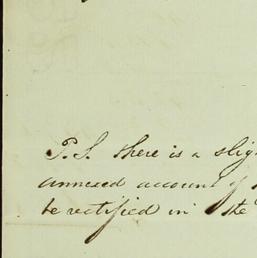 P.S. there is a slig
annexed account of
be rectified in the